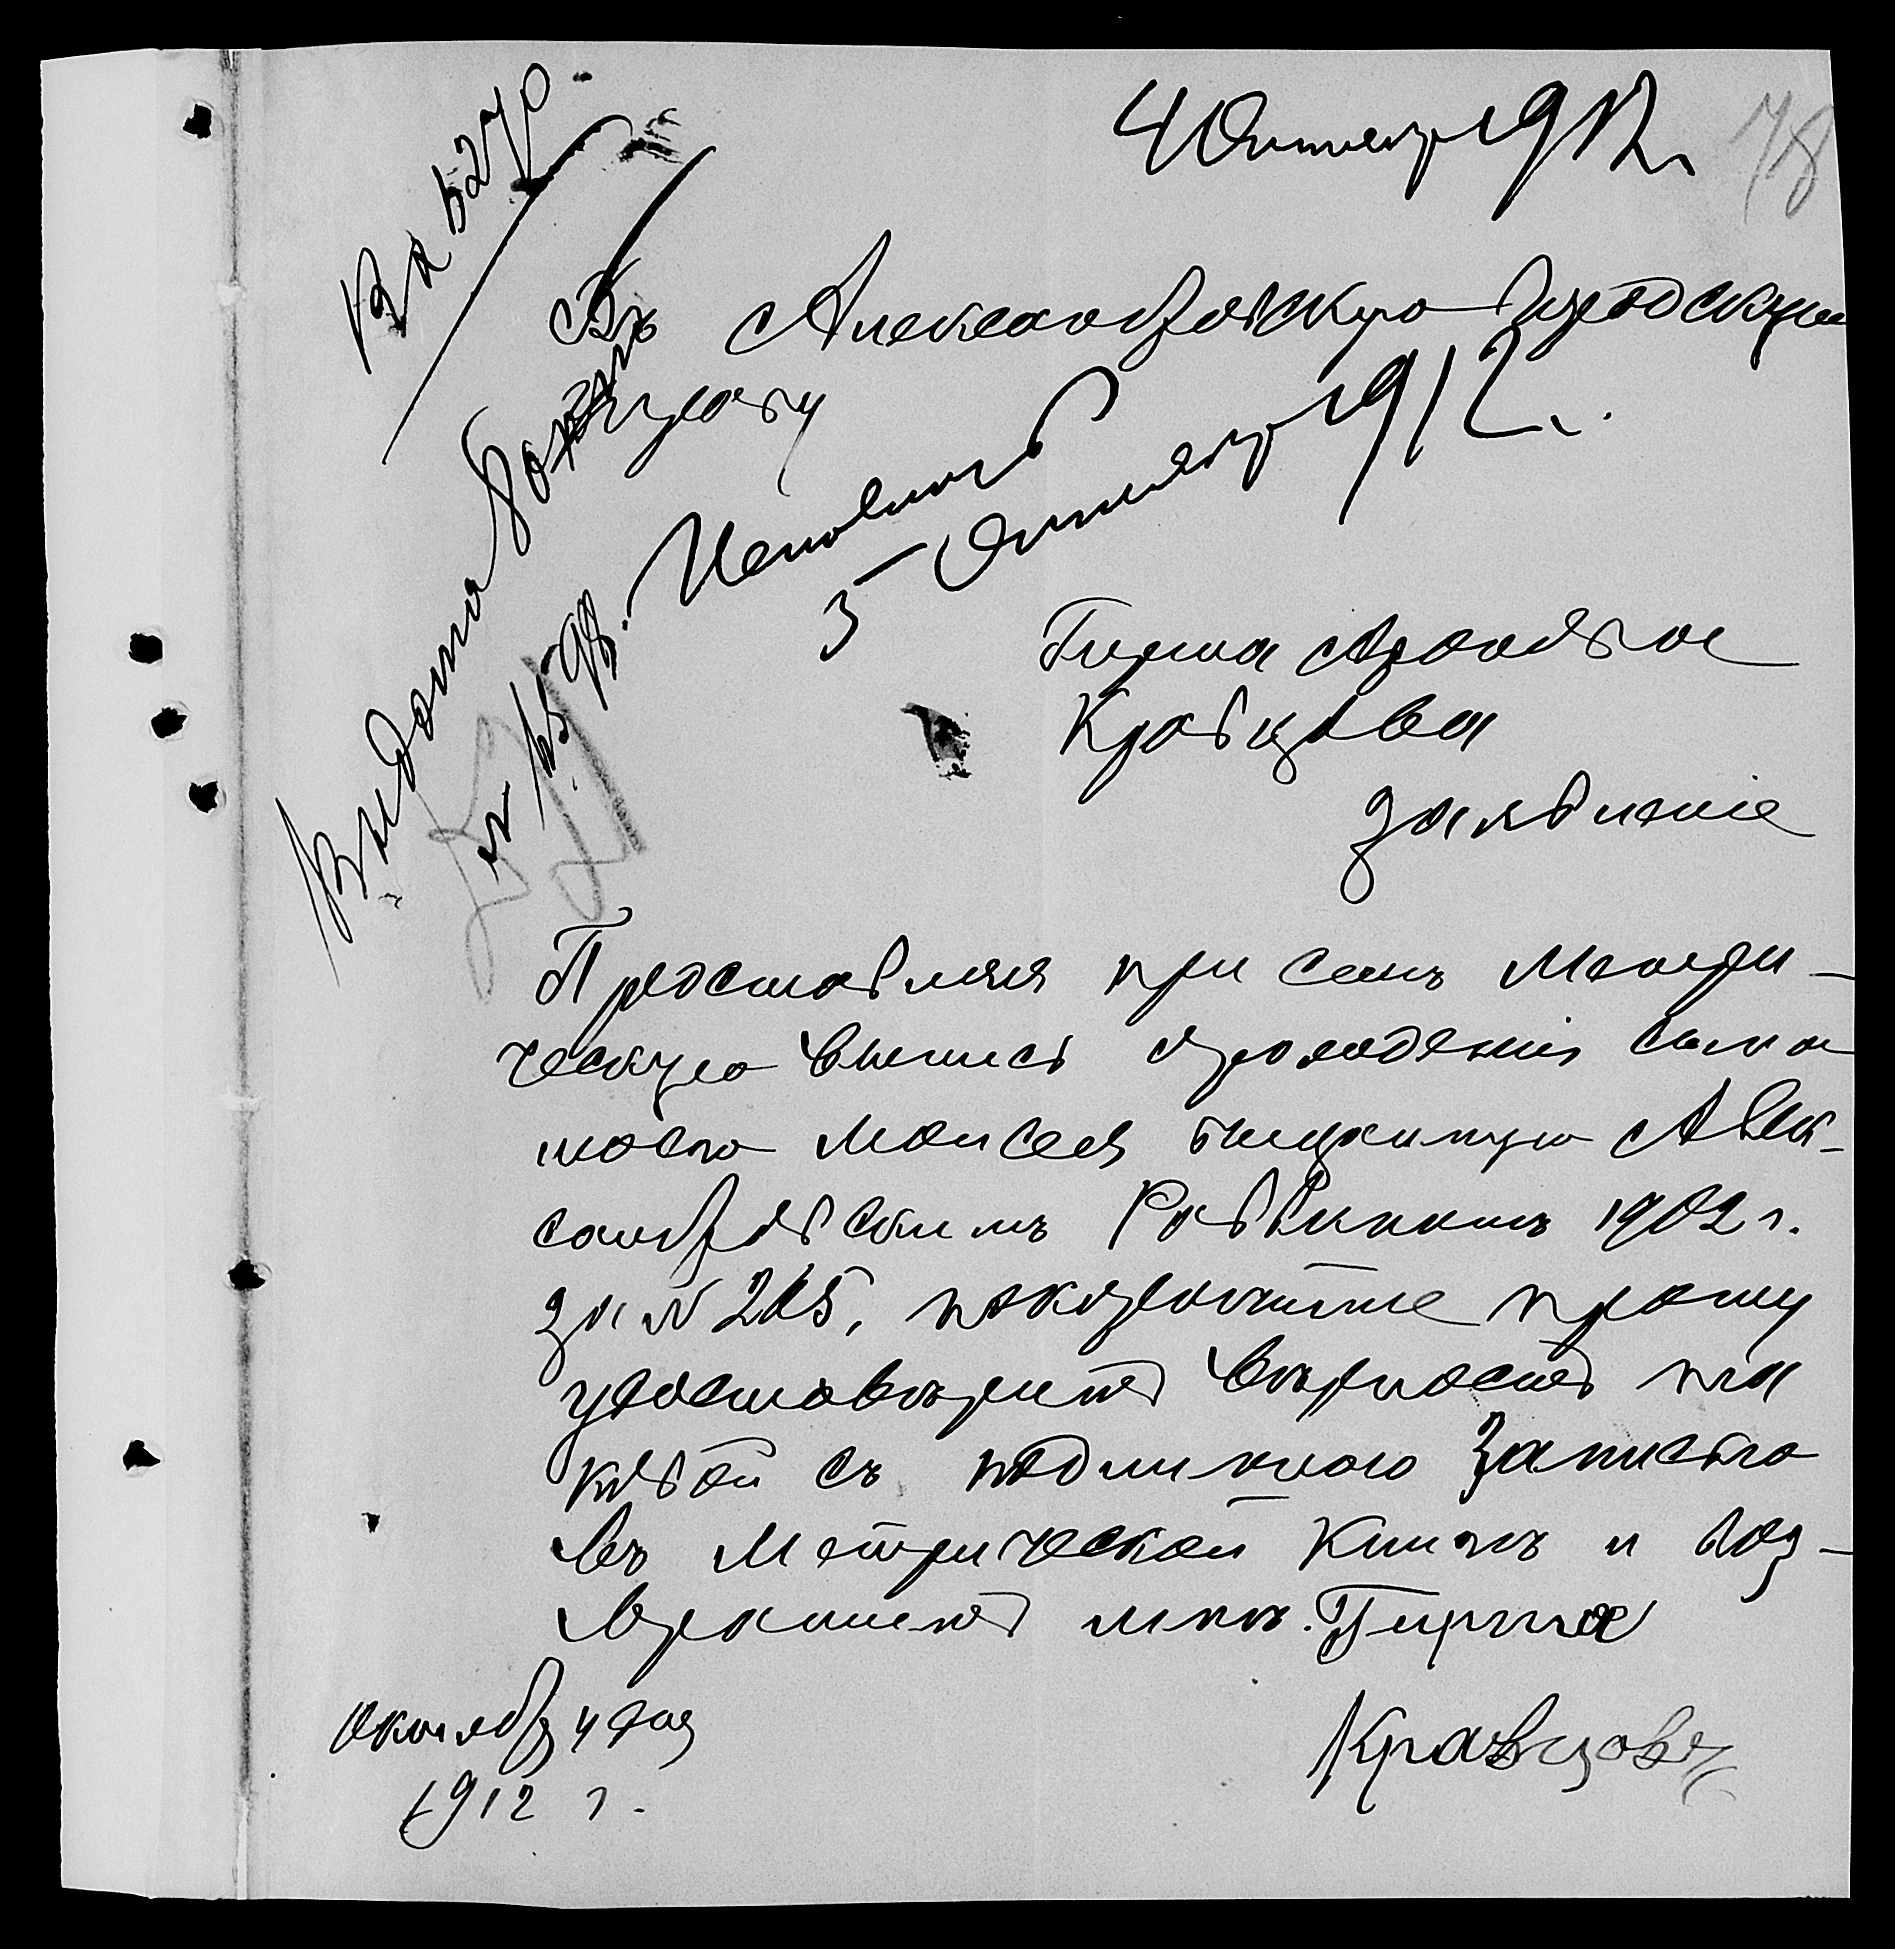 4 Октября 1912 г.
78
Вх 5270
Въ Александровскую Городскую
Управу
Исполнить
5 Октября 1912 г.
Выдана
№ 98.
Гирша Ароновича
Кравцова
Заявленіе
Представляя при семъ метри-
ческую выпись о рожденіи сына
моего Моисея выданную Алек-
сандровскимъ Раввиномъ 1902 г.
за № 205, покорнѣйше прошу
удостовѣрить вѣрность та
ковой съ подлинною записью
въ Метрической Книгѣ и воз-
вратить мнѣ. Гирша
Кравцовъ
Октября 4 дня
1912 г.